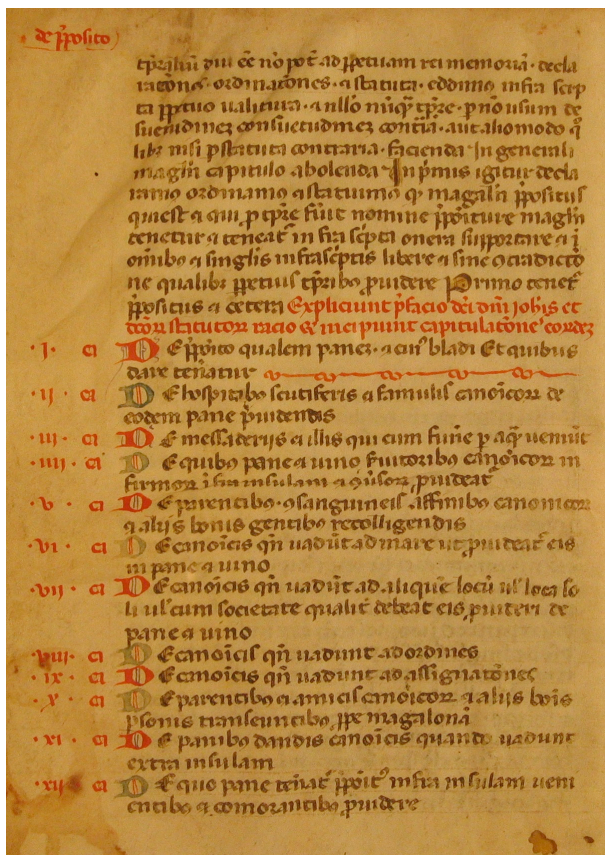 de p̄posito
tp̄raliū diu eē nō pot̄ ad ꝑpetuam rei memoriā · decla
rac̄ones · ordinac̄ones · ⁊ statuta · eddimus infra scrip
ta ꝑpetuo ualitura · ⁊ nullo
libꝫ nisi ꝑ statuta contraria · facienda In generali
magalō capitulo abolenda In p̄mis igitur decla
ramꝰ ordinamꝰ ⁊ statuimꝰ qꝫ magalō p̄positus
qui est ⁊ qui ꝑ tp̄re fūit nomine p̄poiture magalō
tenetur ⁊ teneat̄ infra scp̄ta onera supportare ⁊ ī
omībꝰ ⁊ singlis infrascp̄tis libere ⁊ sine ꝯtradictō
ne qualibꝫ ꝑpetuis tp̄ribꝰ ꝓuidere Primo tenet̄
p̄positus ⁊ cetera Expliciunt p̄facio dc̄i dn̄i ioh̄is et
dc̄oꝝ statutoꝝ racio ⁊ incipiunt capitulac̄ones eoꝛdeꝫ
· I · ca De p̄poito qualem paneꝫ · ⁊ cuiꝰ bladi Et quibus
dare teneatur
· ii · ca De hospitabꝰ scutiferis ⁊ famulis canōicoꝝ de
eodem pane p̄uidendis
· iii · ca De messaderijs ⁊ illis qui cum fune ꝑ aq̄ veniūt
· iiii · ca De quibꝰ pane ⁊ uino ẜuitoribꝰ canōicoꝝ in
firmoꝝ īfra insulam ⁊ ꝓuideat̄
· v · ca De parentibꝰ · ꝯsanguineis affinibꝰ canonicoꝝ
⁊ alijs bonis gentibꝰ recolligendis
· vi · ca De canōicis qn̄ uadūt ad mare ut ꝓuideat̄ eis
in pane ⁊ uino
· vii · ca De canōicis qn̄ uadūt ad aliquē locū ul̄ loca so
li ul̄ cum societate qualit̄ debeat eis ꝓuideri de
pane ⁊ uino
· viii · ca De canōicis qn̄ uadunt ad ordines
· ix · ca De canōicis qn̄ uadunt ad assignac̄ones
· x · ca De parentibꝰ ⁊ amicis canōicoꝝ ⁊ alijs bōis
ꝑsonis transeuntibꝰ ꝓpe magalonā
· xi · ca De panibꝰ dandis canōicis quando uadunt
extra insulam
· xii · ca De quo pane teneat̄ p̄poitꝰ infra insulam ueni
entibꝰ ⁊ comorantibꝰ ꝓuidere